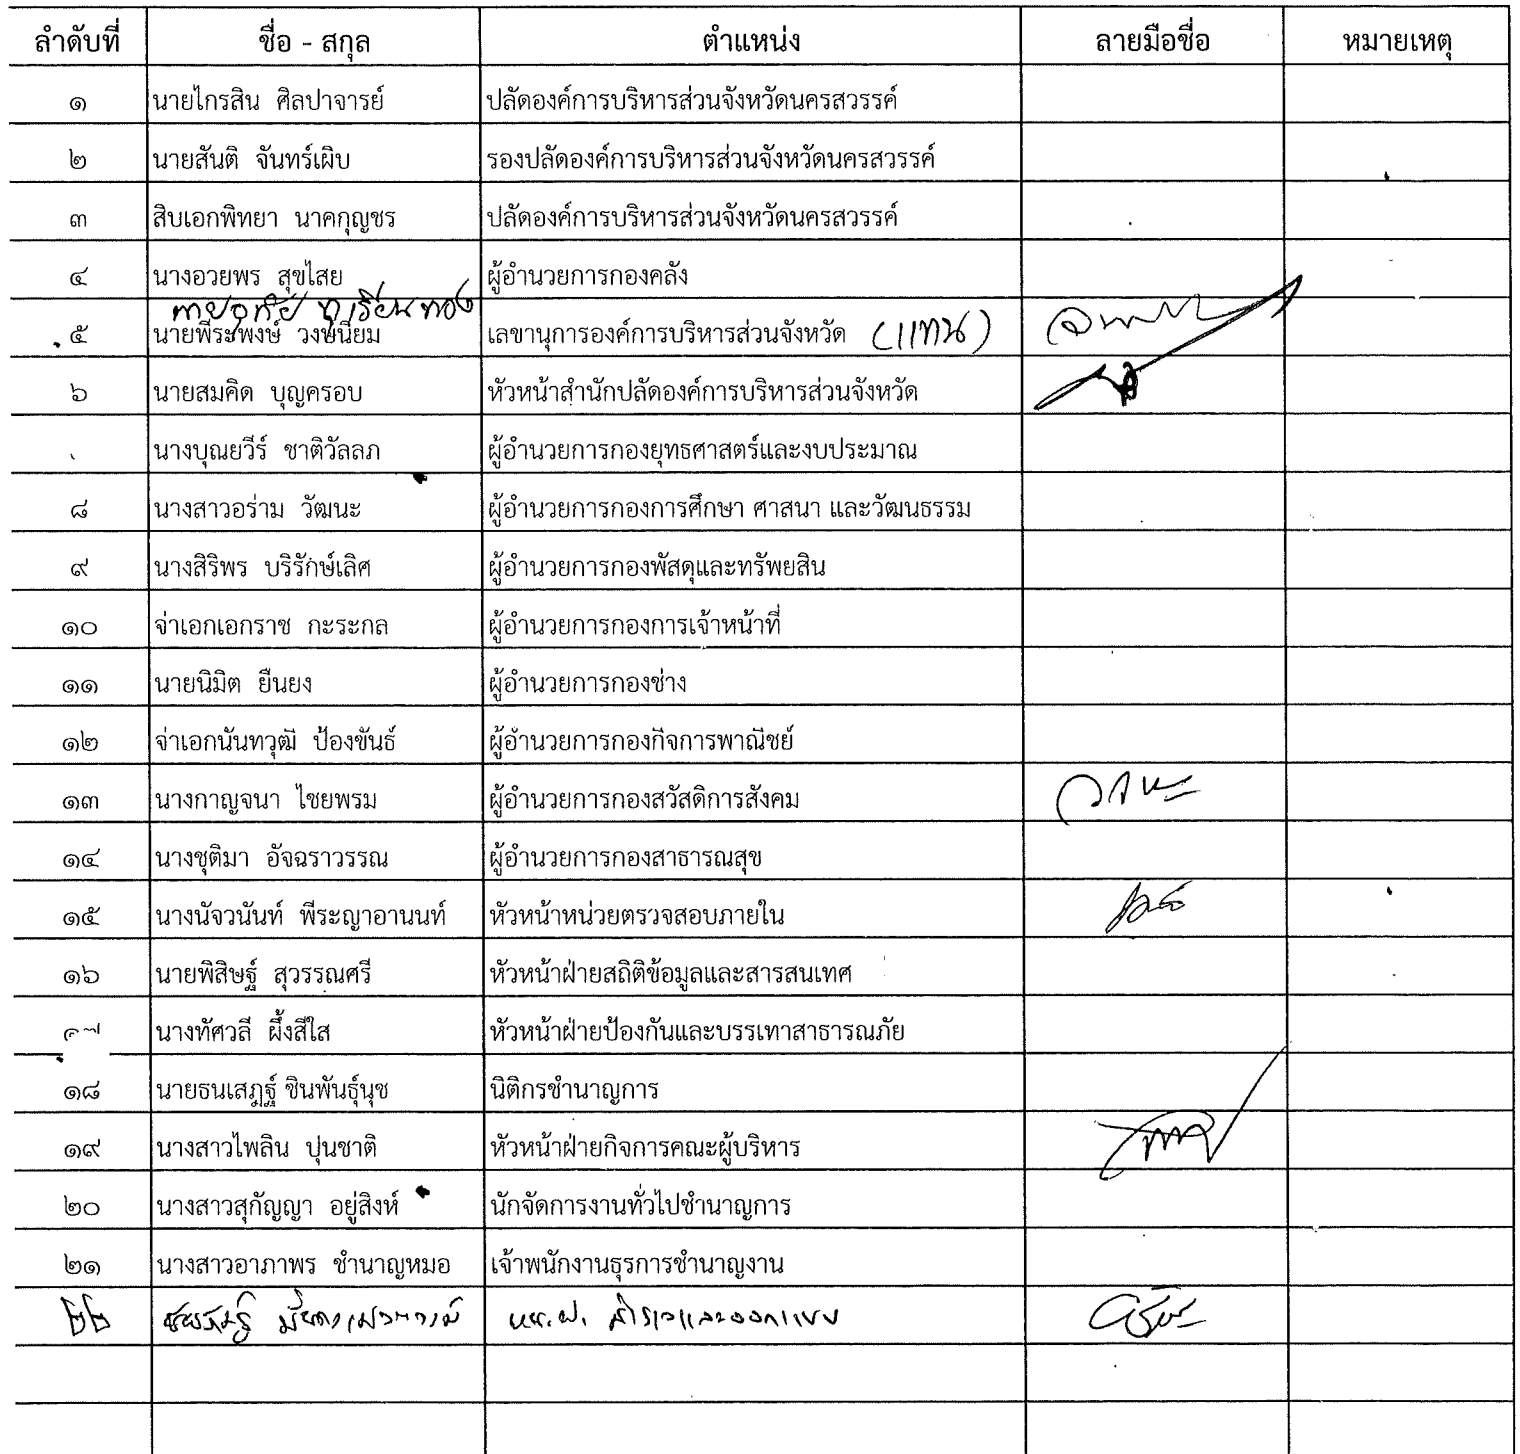 ลำดับที่ ชื่อ - สกุล ตำแหน่ง ลายมือชื่อ หมายเหตุ
๑ นายไกรสิน ศิลปาจารย์ ปลัดองค์การบริหารส่วนจังหวัดนครสวรรค์
๒ นายสันติ จันทร์เผิบ รองปลัดองค์การบริหารส่วนจังหวัดนครสวรรค์
๓ สิบเอกพิทยา นาคกุญชร ปลัดองค์การบริหารส่วนจังหวัดนครสวรรค์
๔ นางอวยพร สุขไสย ผู้อำนวยการกองคลัง
ทุเรียนทอง
๕ นายพีระพงษ์ วงษ์นิยม เลขานุการองค์การบริหารส่วนจังหวัด (แทน)
๖ นายสมคิด บุญครอบ หัวหน้าสำนักปลัดองค์การบริหารส่วนจังหวัด
นางบุณยวีร์ ชาติวัลลภ ผู้อำนวยการกองยุทธศาสตร์และงบประมาณ
๘ นางสาวอร่าม วัฒนะ ผู้อำนวยการกองการศึกษา ศาสนา และวัฒนธรรม
๙ นางสิริพร บริรักษ์เลิศ ผู้อำนวยการกองพัสดุและทรัพยสิน
๑๐ จ่าเอกเอกราช กะระกล ผู้อำนวยการกองการเจ้าหน้าที่
๑๑ นายนิมิต ยืนยง ผู้อำนวยการกองช่าง
๑๒ จ่าเอกนันทวุฒิ ป้องขันธ์ ผู้อำนวยการกองกิจการพาณิชย์
๑๓ นางกาญจนา ไชยพรม ผู้อำนวยการกองสวัสดิการสังคม
๑๔ นางชุติมา อัจฉราวรรณ ผู้อำนวยการกองสาธารณสุข
๑๕ นางนัจวนันท์ พีระญาอานนท์ หัวหน้าหน่วยตรวจสอบภายใน
๑๖ นายพิสิษฐ์ สุวรรณศรี หัวหน้าฝ่ายสถิติข้อมูลและสารสนเทศ
๑๗ นางทัศวลี ผึ้งสีใส หัวหน้าฝ่ายป้องกันและบรรเทาสาธารณภัย
๑๘ นายธนเสฏฐ์ ชินพันธุ์นุช นิติกรชำนาญการ
๑๙ นางสาวไพลิน ปุนชาติ หัวหน้าฝ่ายกิจการคณะผู้บริหาร
๒๐ นางสาวสุกัญญา อยู่สิงห์ นักจัดการงานทั่วไปชำนาญการ
๒๑ นางสาวอาภาพร ชำนาญหมอ เจ้าพนักงานธุรการชำนาญงาน
๒๒ หน.ฝ. สำรวจและออกแบบ